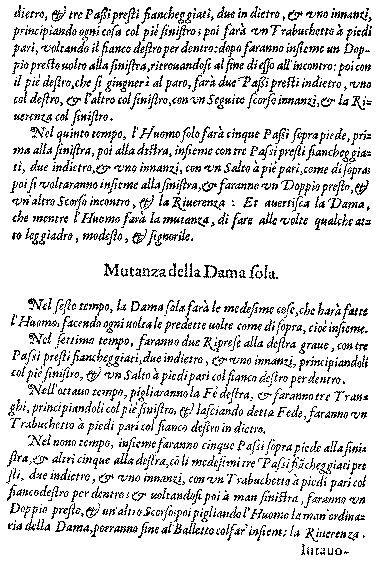 dietro, & tre Paßi presti fiancheggiati, due in dietro, & vno innanzi,
principiando ogni cosa col piè sinistro; poi farà vn Trabuchetto à piedi
pari, voltando il fianco destro per dentro: dopo faranno insieme un Dop-
pio presto volto alla sinistra, ritrouandosi al fine di esso all'incontro: poi con
il piè destro, che si giugnerà al paro, farà due Paßi presti indietro, vno
col destro, & l'altro col sinistro, con vn Seguito scorso innanzi, & la Ri
uerenza col sinistro.
Nel quinto tempo, l'Huomo solo farà cinque Paßi sopra piede, pri-
ma alla sinistra, poi alla destra, insieme con tre Paßi presti fiancheggia-
ti, due indietro, & vno innanzi, con vn Salto à piè pari, come di sopra:
poi si voltaranno insieme alla sinistra, & faranno vn Doppio presto, &
vn'altro Scorso incontro, & la Riuerenza: Et auertisca la Dama,
che mentre l'Huomo farà la mutanza, di fare alle volte qualche at-
to leggiadro, modesto, & signorile.
Mutanza della Dama sola.
Nel sesto tempo, la Dama sola farà le medesime cose, che harà fatte
l'Huomo, facendo ogni uolta le predette uolte come di sopra, cioè insieme.
Nel settimo tempo, faranno due Riprese alla destra graue, con tre
Paßi presti fiancheggiati, due indietro, & vno innanzi, principiandoli
col piè sinistro, & vn Salto à piedi pari col fianco destro per dentro.
Nell'ottauo tempo, pigliaranno la Fè destra, & faranno tre Tran-
ghi, principiandoli col piè sinistro, & lasciando detta Fede, faranno vn
Trabuchetto à piedi pari col fianco destro in dietro.
Nel nono tempo, insieme faranno cinque Paßi sopra piede alla sini-
stra, & altri cinque alla destra, cò li medesimi tre Paßi fiācheggiati pre
sti, due indietro, & vno innanzi, con vn Trabuchetto à piedi pari col
fianco destro per dentro: & voltandosi poi à man sinistra, faranno vn
Doppio presto, & vn'altro Scorso: poi pigliando l'Huomo la man' ordina-
ria della Dama, porranno fine al Balletto col far' insieme la Riuerenza.
Intauo-